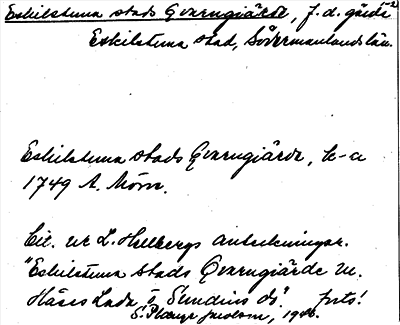 Eskilstuna stads Qvarngiärde, f.d. gärde
Eskilstuna stad, Södermanlands län.
Eskilstuna stads Qvarngiärde, k-a
1749 A. Mörn.
Cit. ur L. Hellbergs anteckningar.
"Eskilstuna stads Qvarngiärde m.
Håses Lada ö Sundius d:" forts!
1946.